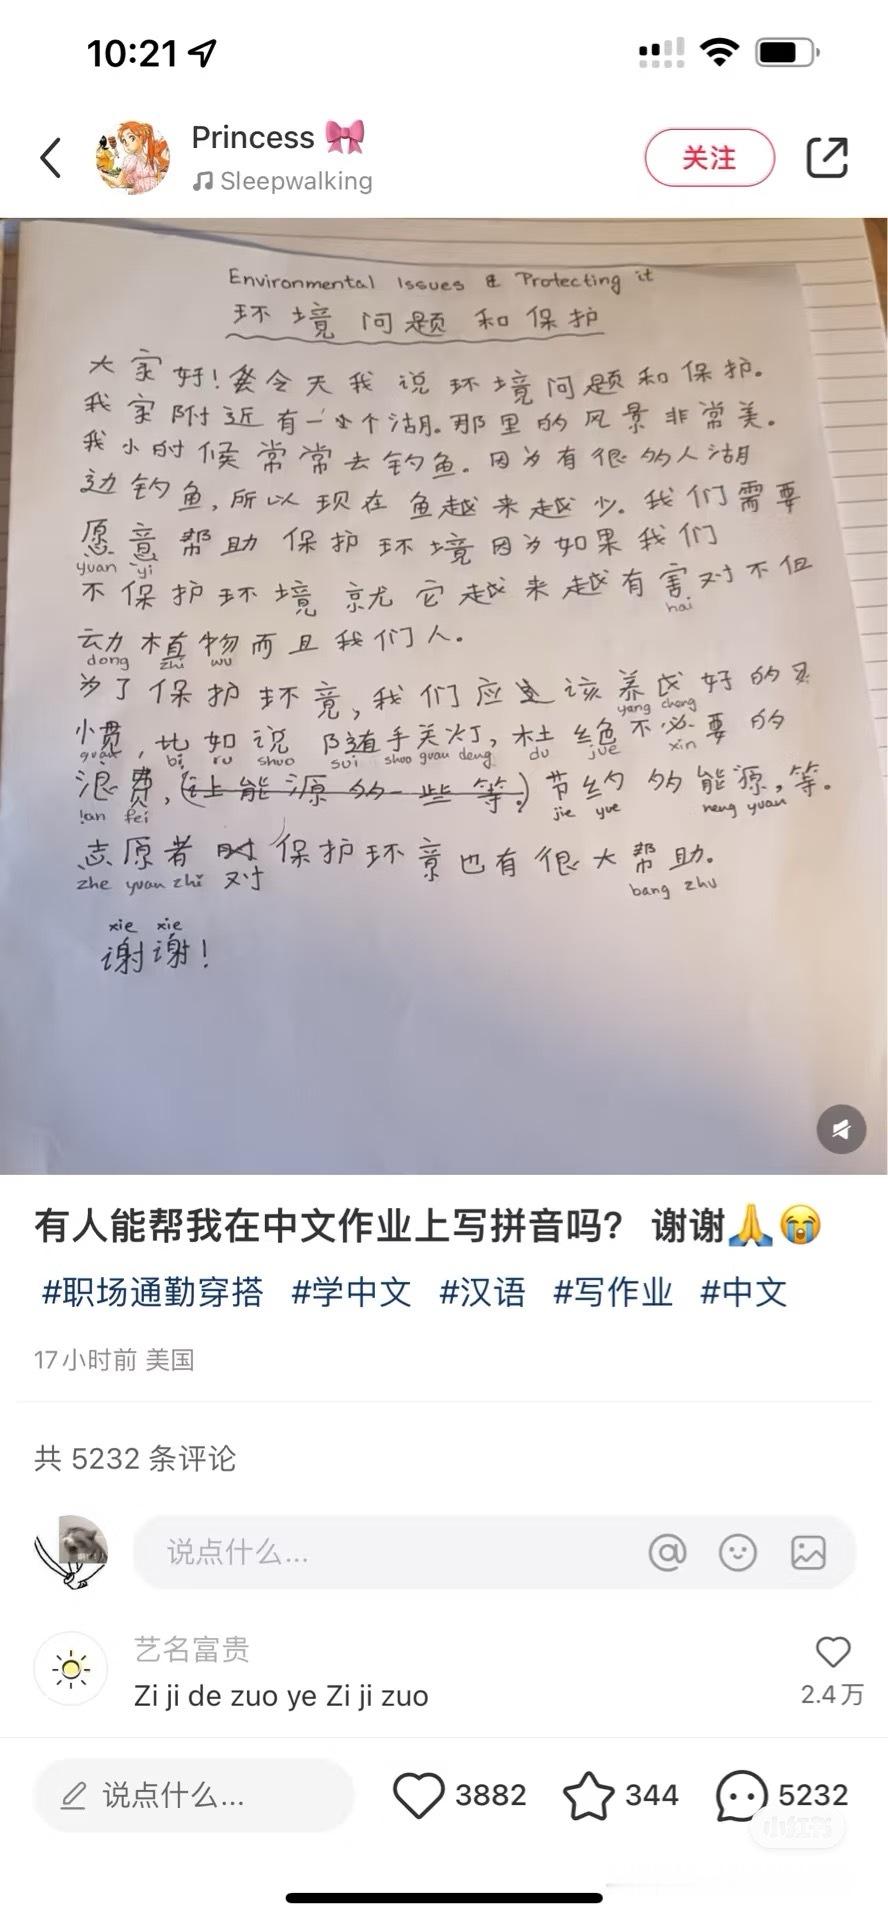 10:21
Princess
Sleepwalking
关注
Environmental Issues & Protecting it
环境问题和保护
大家好！今天我说环境问题和保护。
我家附近有一个湖。那里的风景非常美。
我小时候常常去钓鱼。因为有很多人湖
边钓鱼，所以现在鱼越来越少。我们需要
愿意帮助保护环境因为如果我们
yuan yi
不保护环境就它越来越有害对不但
hai
动植物而且我们人。
dong zhi wu
为了保护环境，我们应该养成好的习
yang cheng
惯，比如说随手关灯，杜绝不必要的
guan bi ru shuo sui shou guan deng du jue xin
浪费，(让能源的一些等。)节约的能源，等。
lan fei jie yue neng yuan
志愿者对保护环境也有很大帮助。
zhe yuan zhi bang zhu
xie xie
谢谢！
有人能帮我在中文作业上写拼音吗？ 谢谢🙏😭
#职场通勤穿搭 #学中文 #汉语 #写作业 #中文
17小时前 美国
共 5232 条评论
说点什么...
艺名富贵
Zi ji de zuo ye Zi ji zuo
2.4万
说点什么...
3882
344
5232
小红书